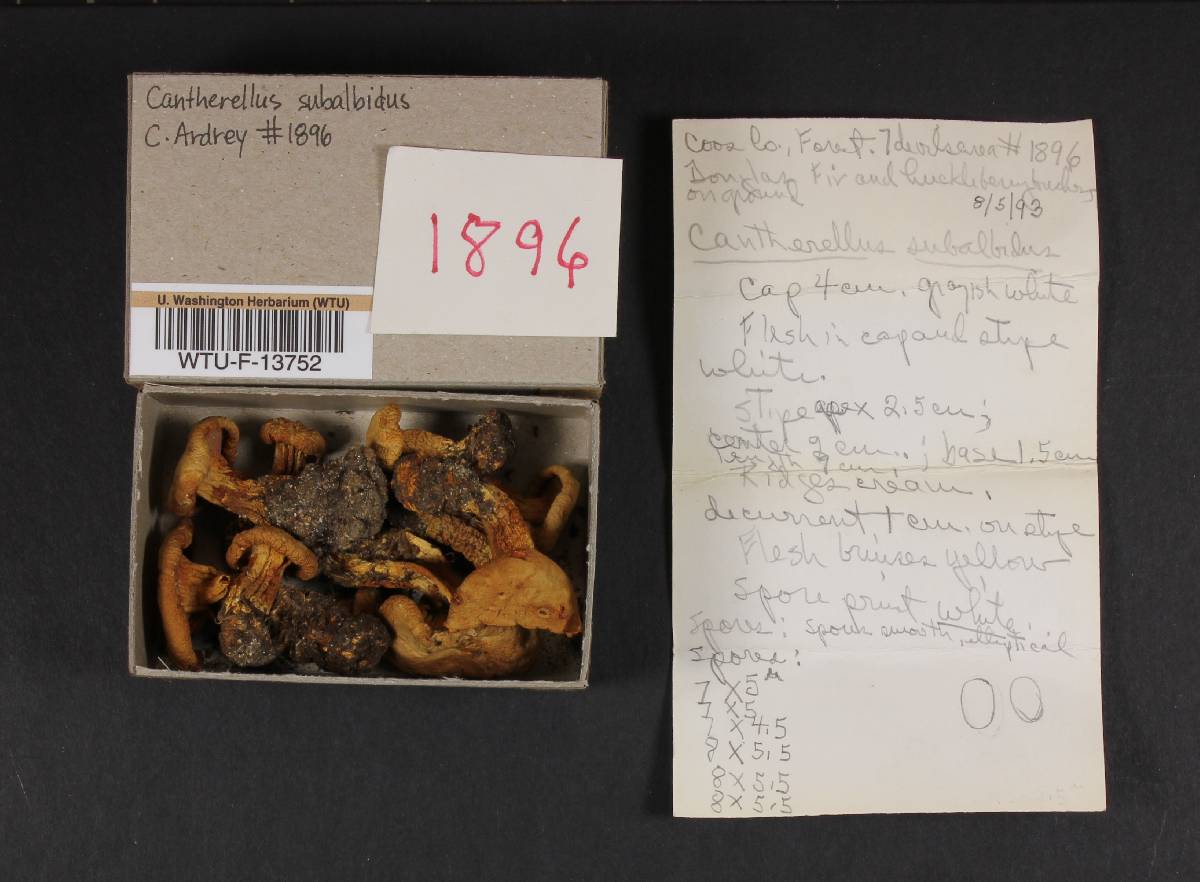 Cantherellus subalbidus
C. Ardrey #1896
1896
U. Washington Herbarium (WTU)
WTU-F-13752
Coos Co., Forest. 7 devils area #1896
Douglas Fir and huckleberry bushes
on ground
8/5/93
Cantherellus subalbidus
Cap 4 cm. grayish white
Flesh in cap and stipe
white.
Stipe apex 2.5 cm;
center 2 cm.; base 1.5 cm
length 9 cm;
Ridges cream,
decurrent 1 cm. on stipe
Flesh bruises yellow
Spore print white.
Spores: spores smooth, elliptical
Spores:
7 X 5 µ
7 X 5
7 X 4.5
8 X 5.5
8 X 5.5
8 X 5.5